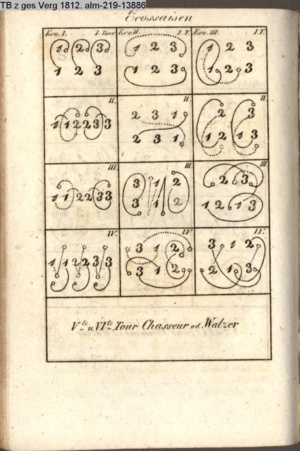 TB z ges Verg 1812. alm-219-13886
Ecossaisen
Eco. I. I. Tour Eco. II. I. T. Eco. III. I. T.
1 2 3 1 2 3 1 2 3
1 2 3 1 2 3 1 2 3
II. II. II.
1 1 2 2 3 3 2 3 1 2
2 3 1 1 2 3
III. III. III.
1 1 2 2 3 3 3 1 2 2 3
3 1 2 1 2 1 3
IV. IV. IV.
1 1 2 2 3 3 3 1 2 3 1 2
3 1 2 2 1 3
V.te u. VI.te Tour Chasseur od. Walzer